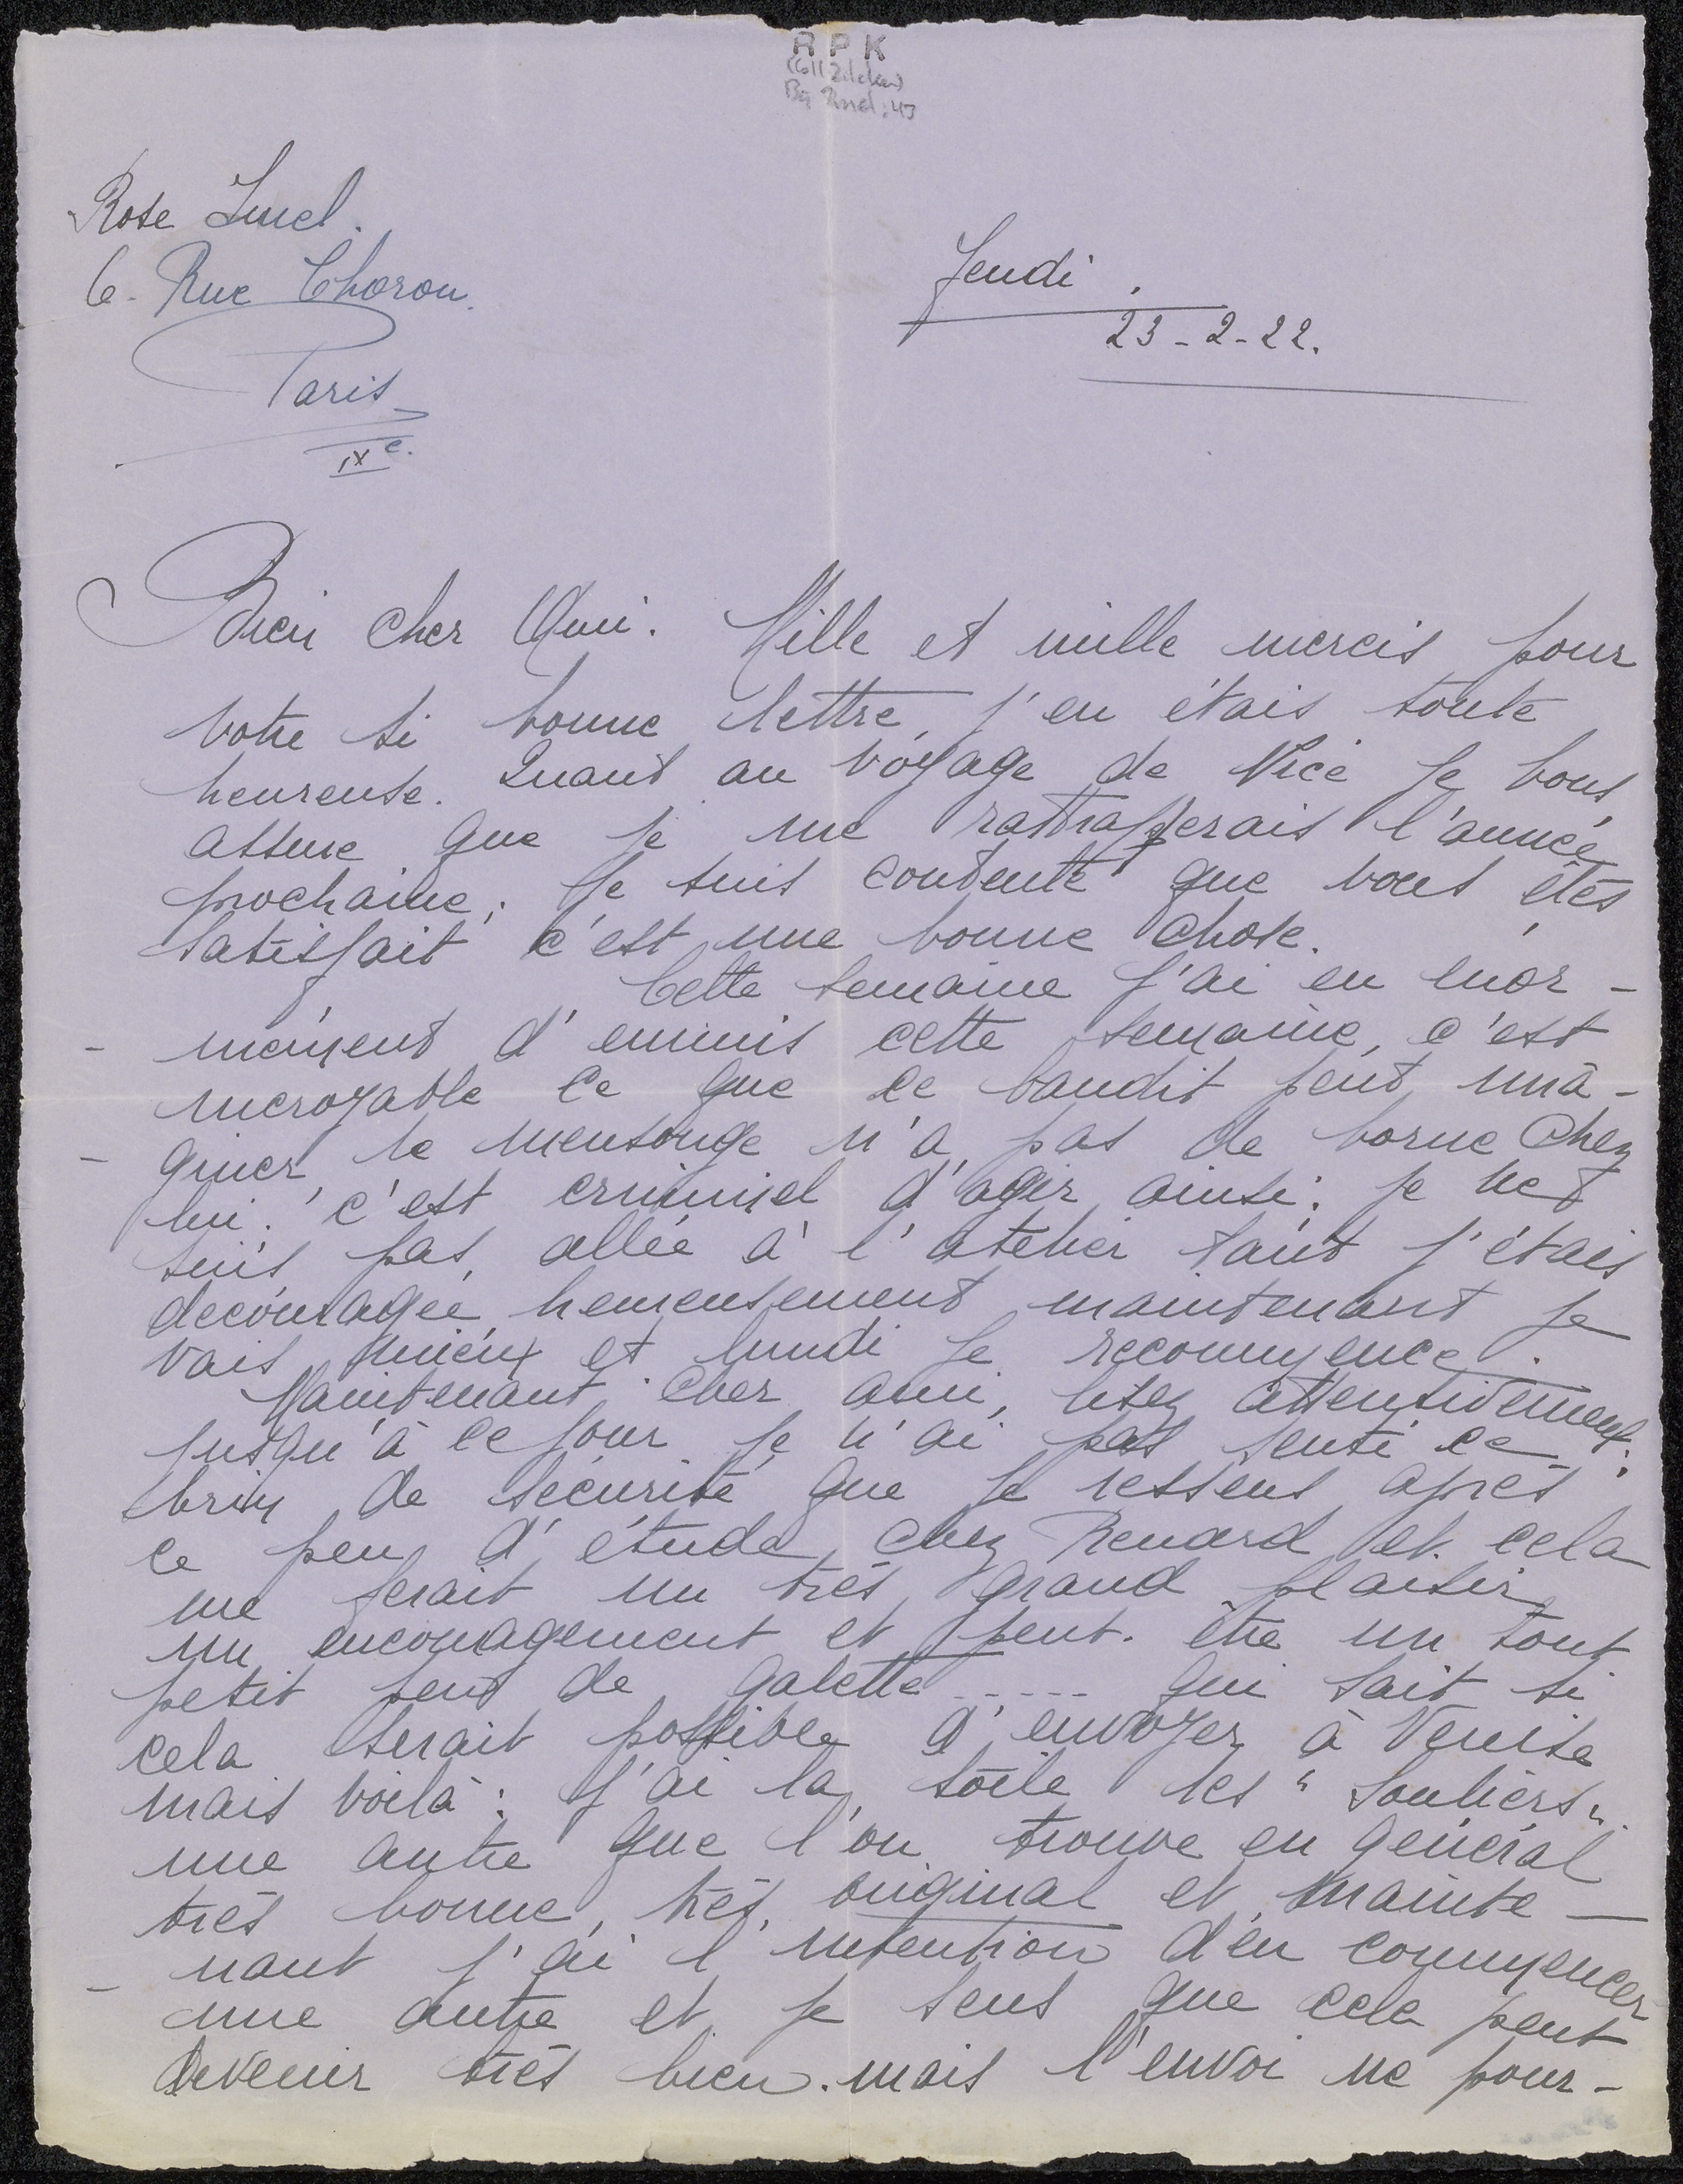 R P K
(Coll Zilcken)
Rose
6. Rue Choron.
Paris
IXe.
Jeudi.
23-2-22.
Bien cher Ami. Mille et mille mercis pour
votre si bonne lettre, j'en étais toute
heureuse. Quant au voyage de Nice je vous
assure que je me rattrapperais l'année
prochaine; je suis contente que vous êtes
satisfait c'est une bonne chose.
Cette semaine j'ai eu enor-
-mément d'ennuis cette semaine, c'est
incroyable ce que ce bandit peut ima-
-giner, le mensonge n'a pas de borne chez
lui. c'est criminel d'agir ainsi; je ne
suis pas allée à l'atelier tant j'étais
decouragée, heureusement maintenant je
vais mieux et lundi je recommence.
Maintenant cher ami, lisez attentivement:
jusqu'à ce jour je n'ai pas senti ce
brin de sécurité que je ressens après
ce peu d'étude chez Renard et cela
me ferait un très grand plaisir
un encouragement et peut-être un tout
petit peu de galette ..... qui sait si
cela serait possible d'envoyer à Venise
mais voilà: j'ai la toile les "souliers"
une autre que l'on trouve en général
très bonne, très, original et mainte-
-nant j'ai l'intention d'en commencer
une autre et je sens que cela peut
devenir très bien. mais l'envoi ne pour-